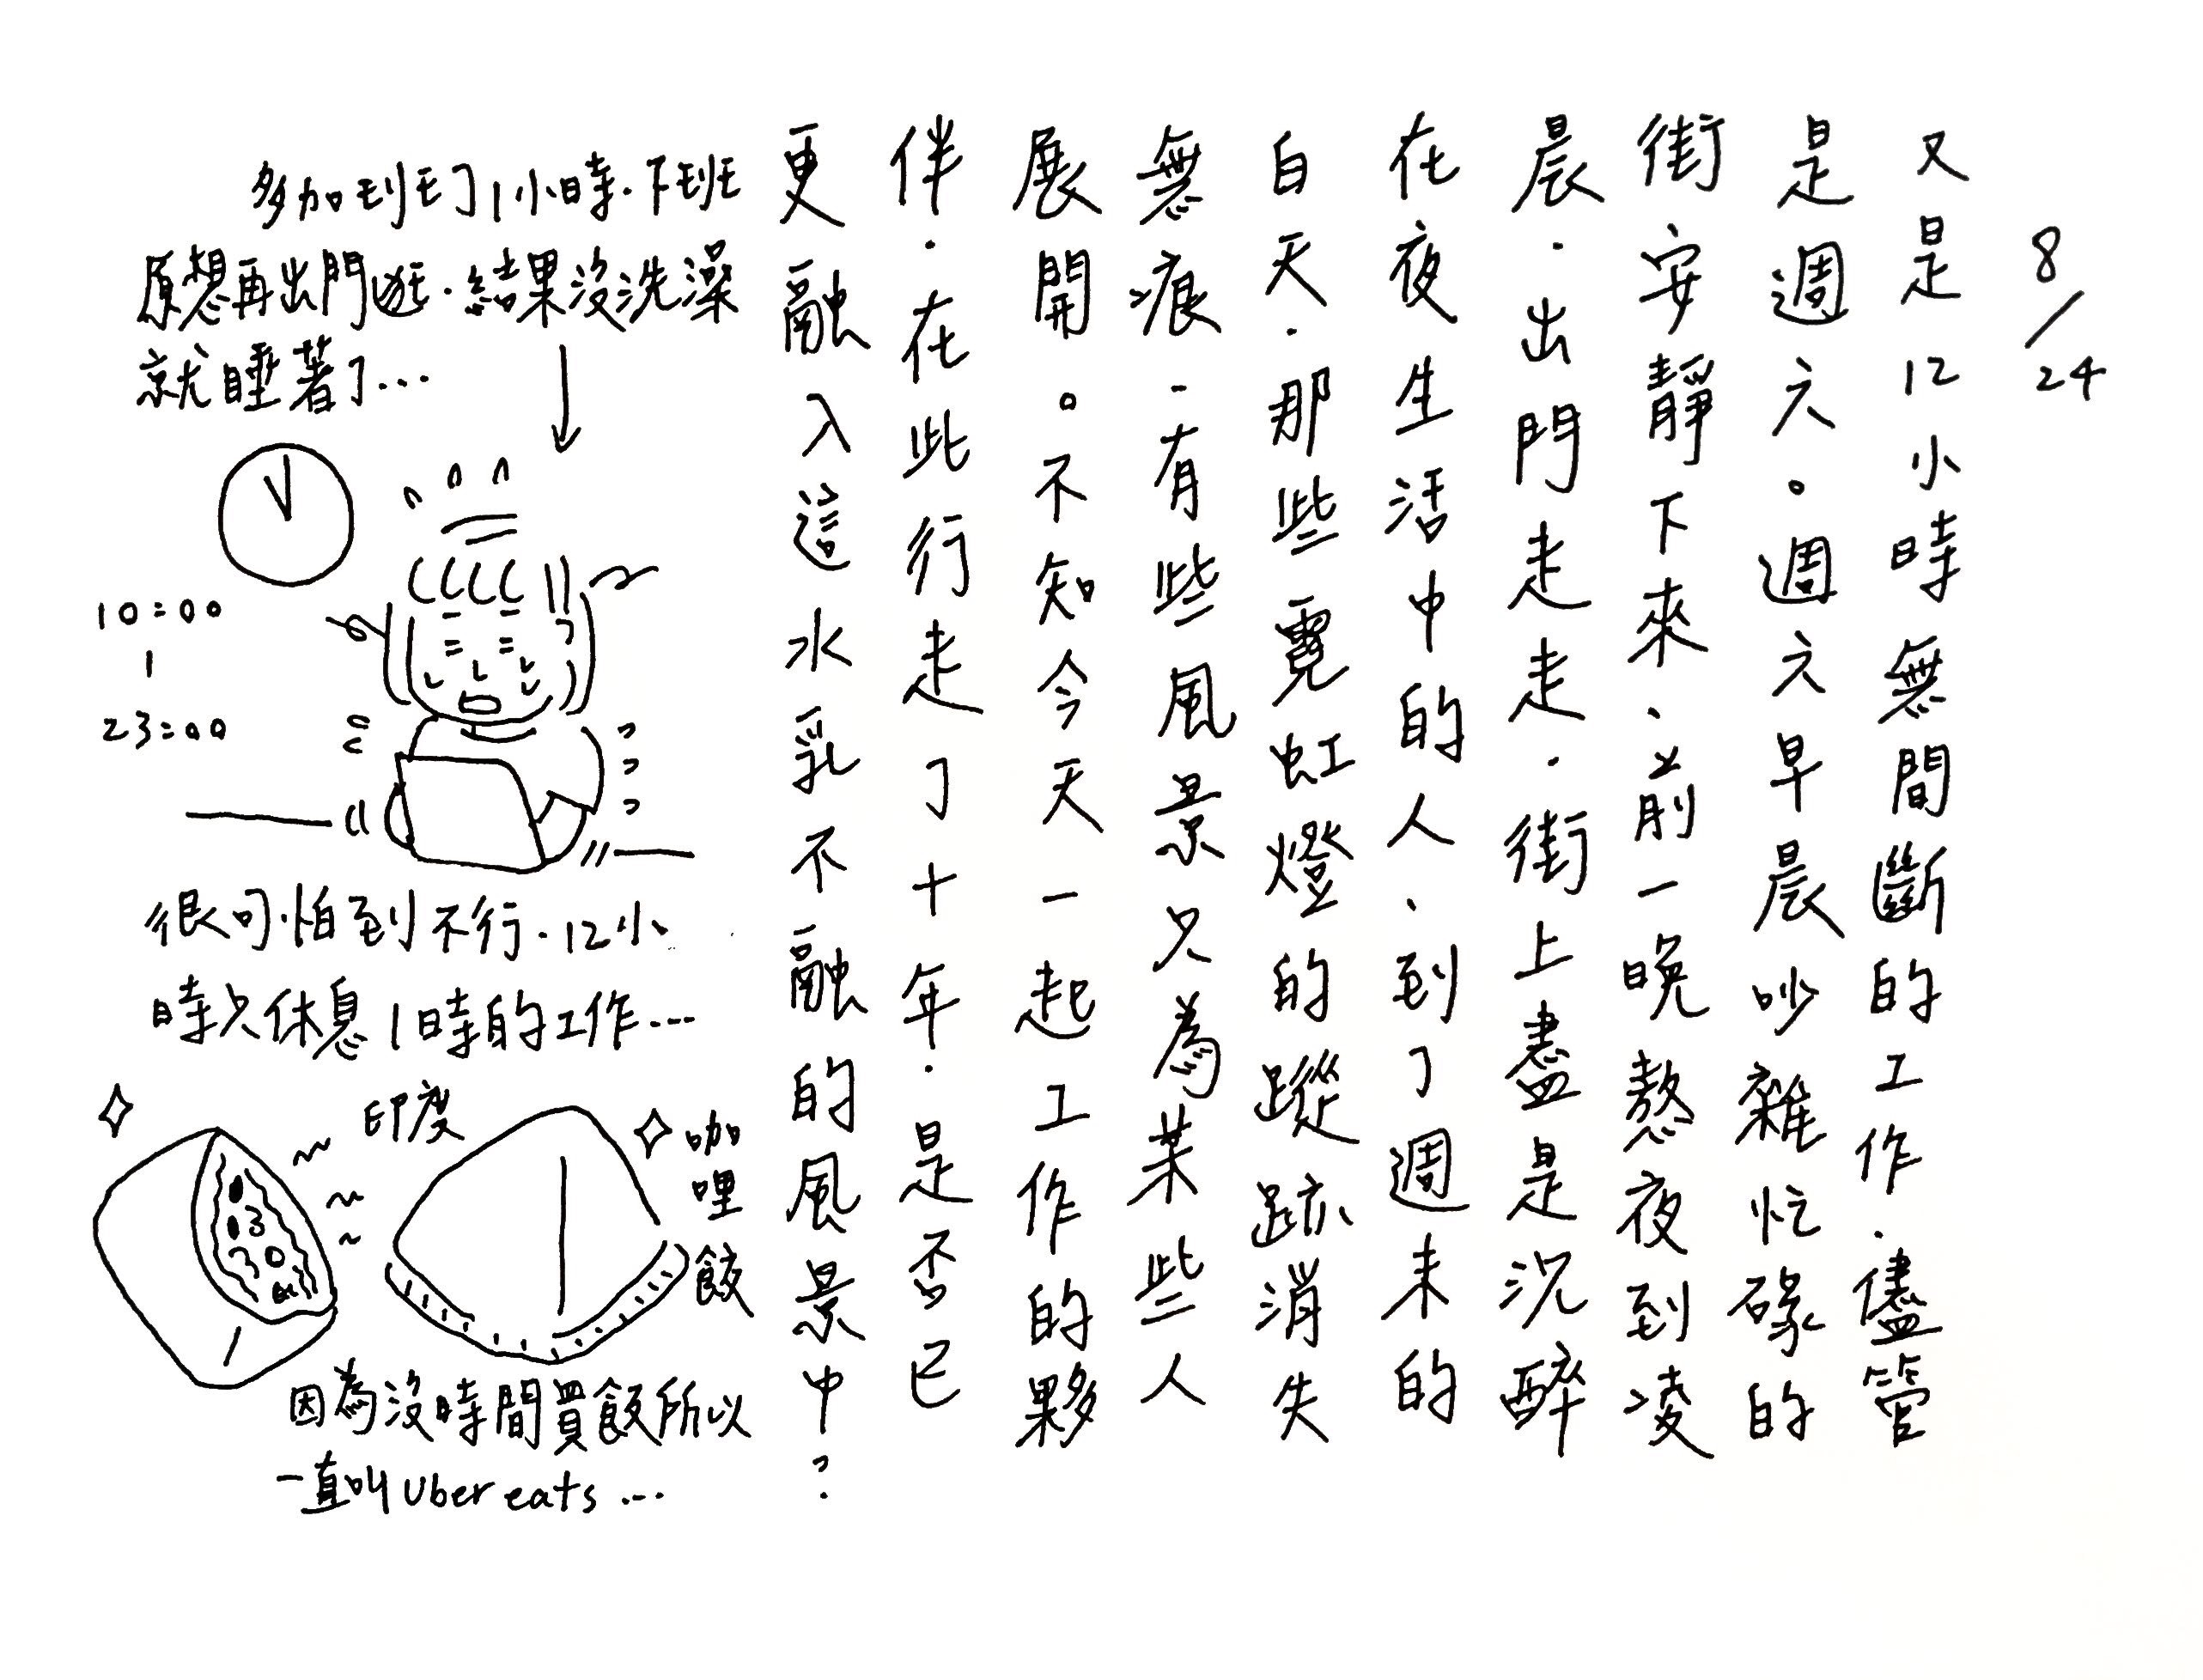 8/24
又是12小時無間斷的工作.儘管
是週六。週六早晨吵雜忙碌的
街安靜下來、前一晚熬夜到凌
晨.出門走走.街上盡是沉醉
在夜生活中的人、到了週末的
白天.那些霓虹燈的蹤跡消失
無痕.有些風景只為某些人
展開。不知今天一起工作的夥
伴.在此行走了十年.是否已
更融入這水乳不融的風景中?
多加班了1小時.下班
原想再出門逛.結果沒洗澡
就睡著了...
10:00
|
23:00
很可怕到不行.12小
時只休息1時的工作...
印度
咖哩餃
因為沒時間買飯所以
一直叫Uber eats...